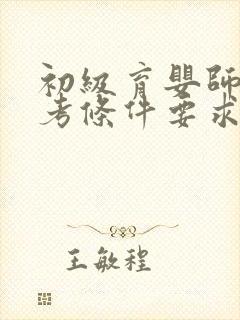 初級育嬰師
考條件要求
王敏程